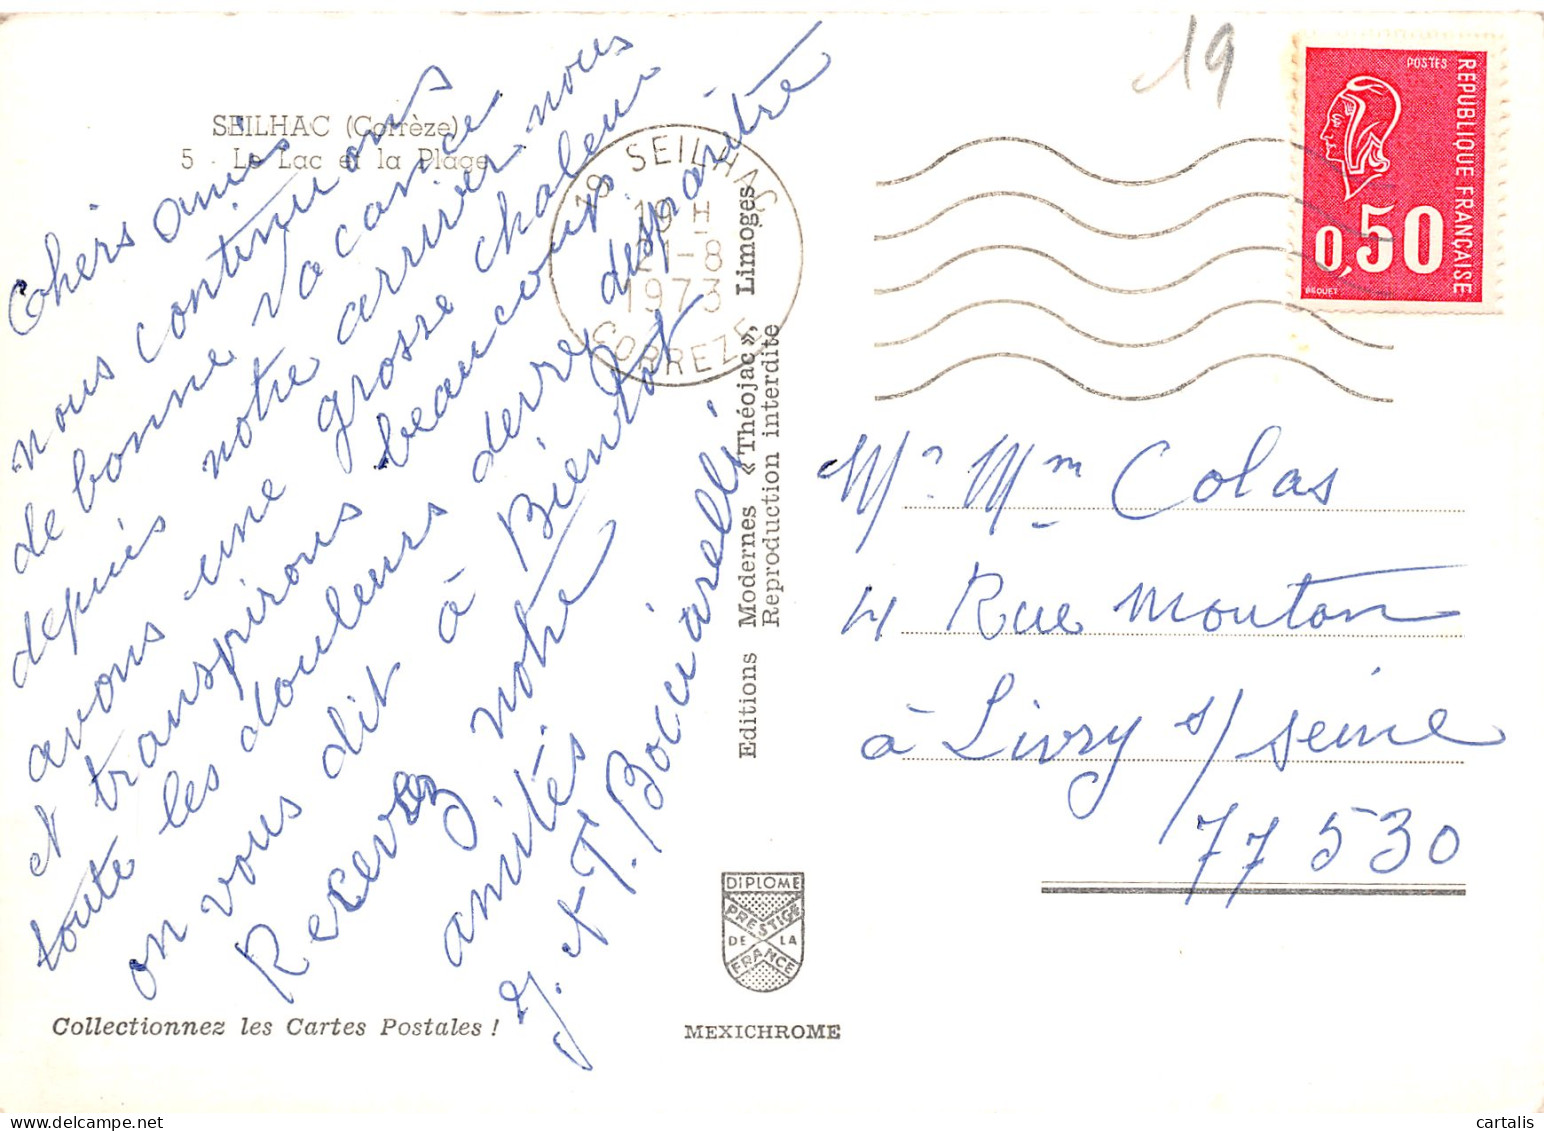 SEILHAC (Corrèze)
5 - Le Lac et la Plage
Chers amis
nous continuons
de bonne vacance
depuis notre arriver nous
avons une grosse chaleur
et transpirons beaucoup
toute les douleurs devre disparètre
on vous dit à Bientot
Recevez notre
amités
J. et T. Bociarelli
Collectionnez les Cartes Postales !
19 SEILHAC
19 H
21-8
1973
CORREZE
Editions Modernes « Théojac », Limoges
Reproduction interdite
DIPLOME
PRESTIGE
DE LA
FRANCE
MEXICHROME
19
POSTES
REPUBLIQUE FRANÇAISE
0,50
BEQUET
Mr Mm Colas
4 Rue Mouton
à Livry s/ seine
77530
cartalis